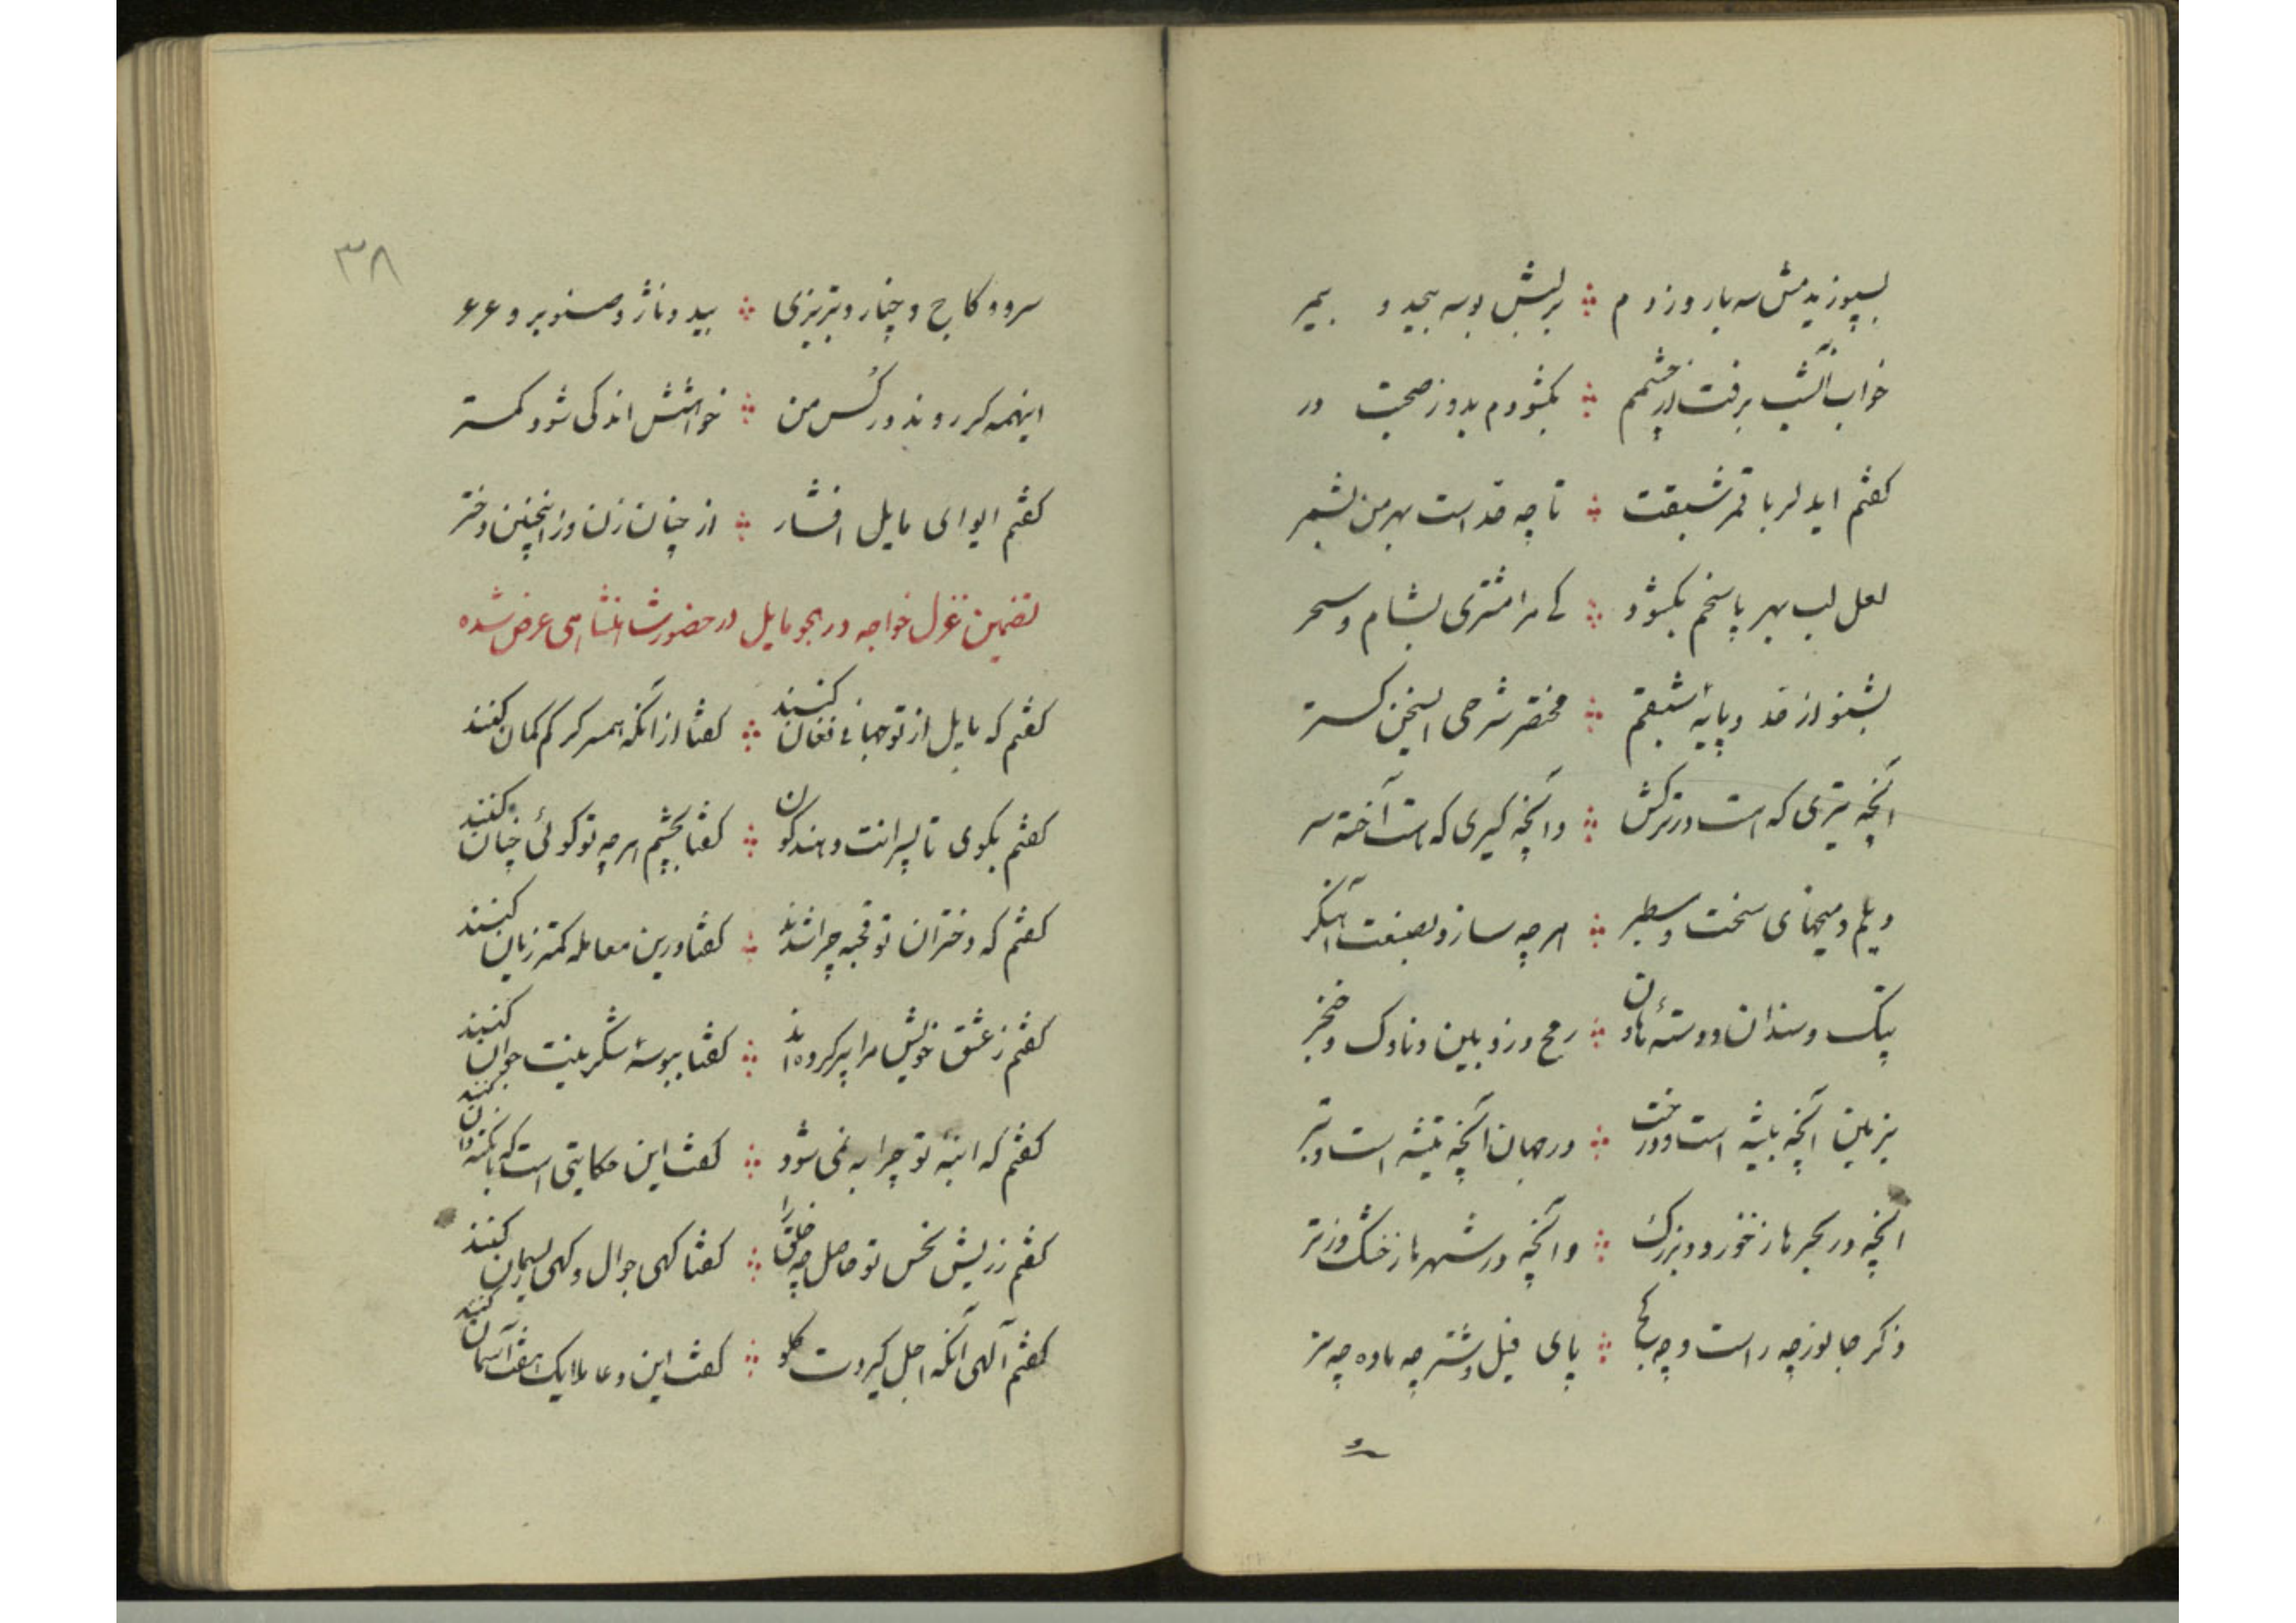 بسپوزیدمش سه بار و زدم ∴ برلبش بوسه بیحد و بیمر
خواب آنشب برفت از چشمم ∴ بگشودم بدو ز صحبت در
گفتم ایدلربا قمر شبقت ∴ تا چه قد است بهر من بشمر
لعل لب بهر پاسخم بگشود ∴ کی مرا مشتری بشام و سحر
بشنو از قد و پایهٔ شبقم ∴ مختصر شرحی ایسخن گستر
آنچه تیری که است در ترکش ∴ وانچه کیری که هست آخته سر
دیلم و میخهای سخت و سطبر ∴ هر چه سازد بصنعت آهنگر
پتک و سندان و دستهٔ هاون ∴ رمح و زوبین و ناوک و خنجر
بزمین آنچه بیشه است و درخت ∴ در جهان آنچه تیشه است و تبر
آنچه در بحرها ز خورد و بزرگ ∴ وانچه در شهرها ز خشک و ز تر
ذکر جانور چه راست و چه کج ∴ پای فیل و شتر چه ماده چه نر
و
۳۸
سرو و کاج و چنار و تبریزی ∴ بید و ناژ و صنوبر و عرعر
اینهمه گر روند در کس من ∴ خواهشش اندکی شود کمتر
گفتم ایوای مایل افشار ∴ از چنان زن وز اینچنین دختر
تضمین غزل خواجه در هجو مایل در حضور شاهنشاهی عرض شده
گفتم که مایل از تو جهانی فغان کنند ∴ گفتا از آنکه همسر کرکم گمان کنند
گفتم بگوی تا پسرانت دهند کون ∴ گفتا بچشم هر چه تو گوئی چنان کنند
گفتم که دختران تو قحبه چرا شدند ∴ گفتا درین معامله کمتر زیان کنند
گفتم ز عشق خویش مرا پیر کرده‌اند ∴ گفتا ببوسهٔ شکرینت جوان کنند
گفتم که ابنهٔ تو چرا به نمی شود ∴ گفت این حکایتی است که با نکته دان کنند
گفتم ز ریش نحس تو حاصل چه خلق را ∴ گفتا گهی جوال و گهی ریسمان کنند
گفتم الهی آنکه اجل گیردت گلو ∴ گفت این دعا ملایک هفت آسمان کنند